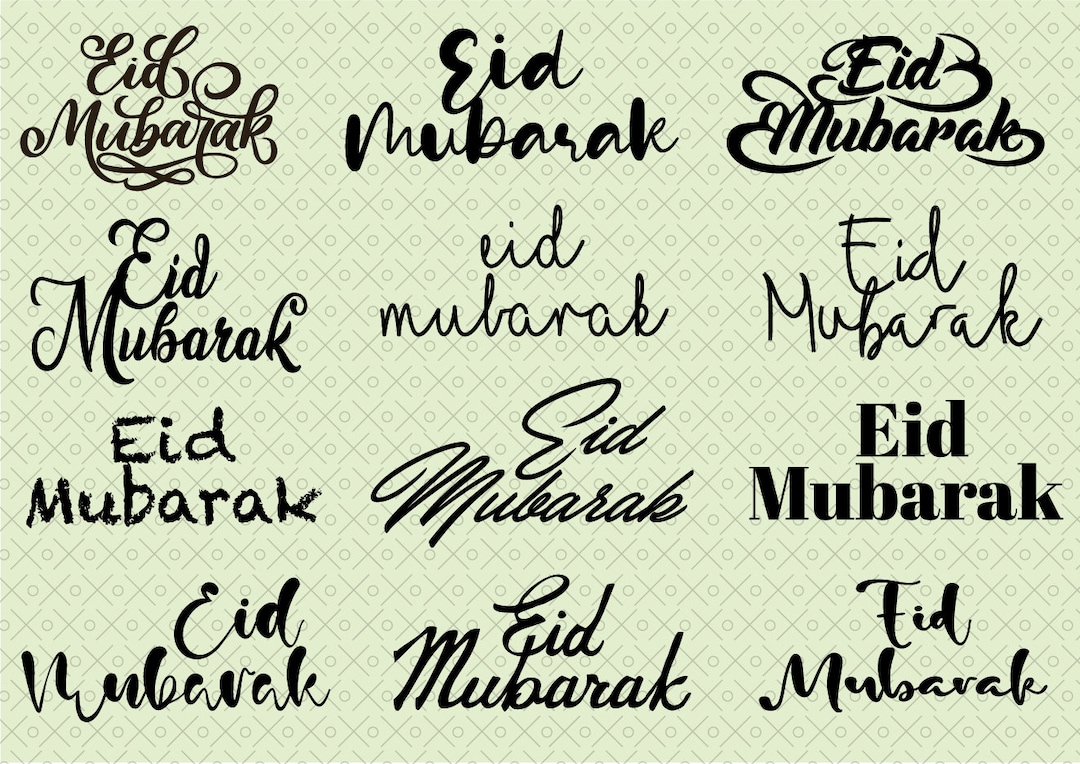 Eid
Mubarak
Eid
Mubarak
Eid
Mubarak
Eid
Mubarak
eid
mubarak
Eid
Mubarak
Eid
Mubarak
Eid
Mubarak
Eid
Mubarak
Eid
Mubarak
Eid
Mubarak
Eid
Mubarak